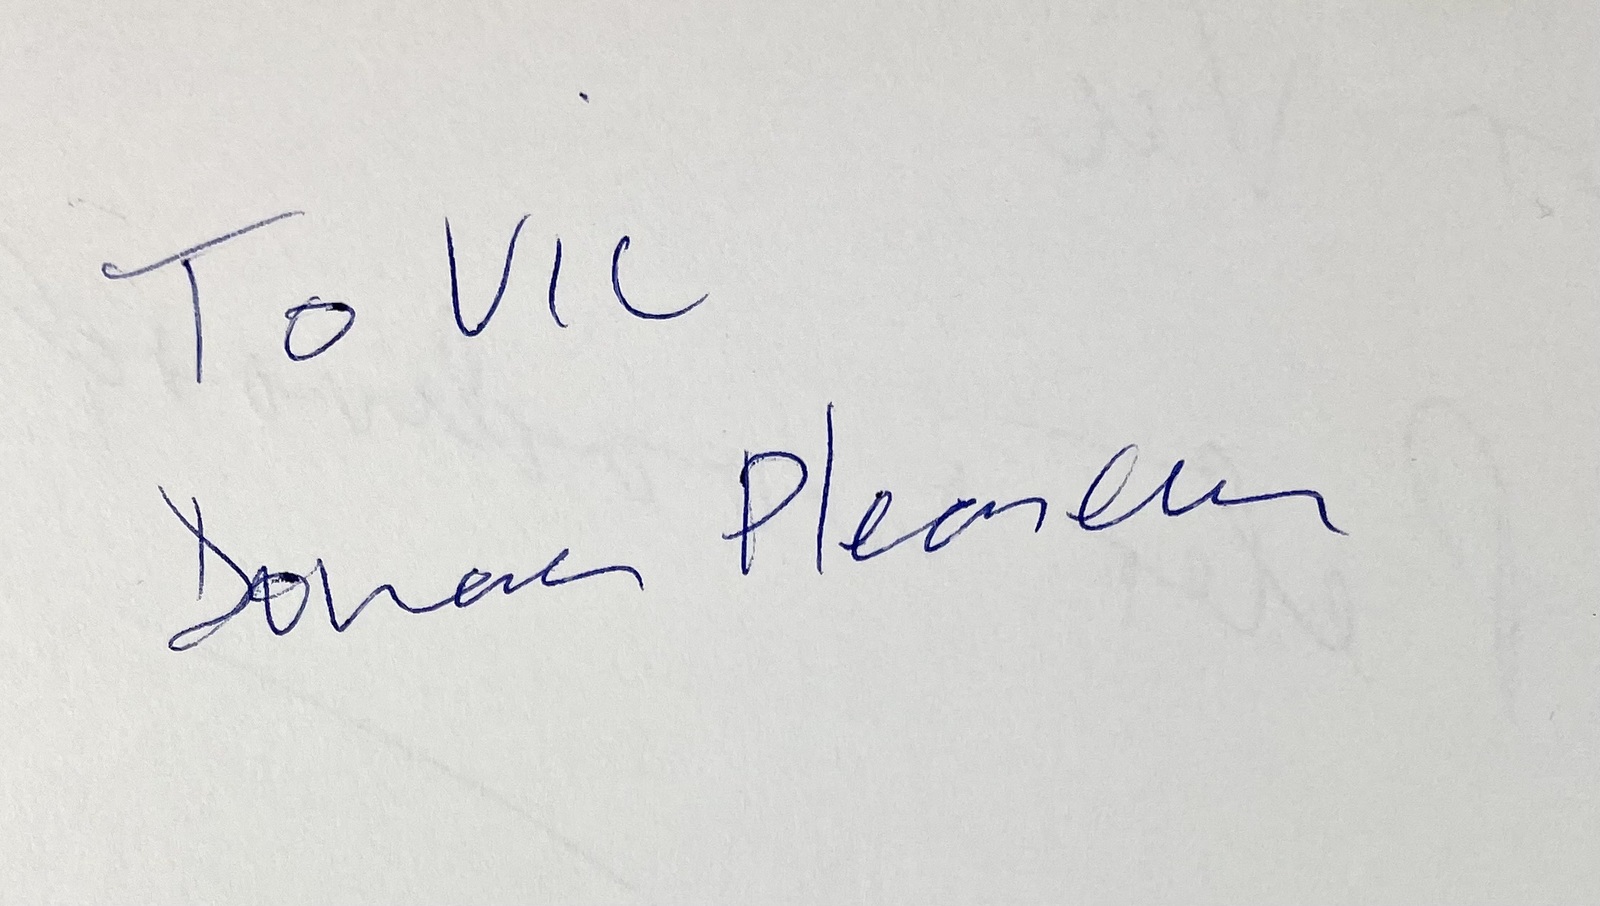 To Vic
Donald Pleasence